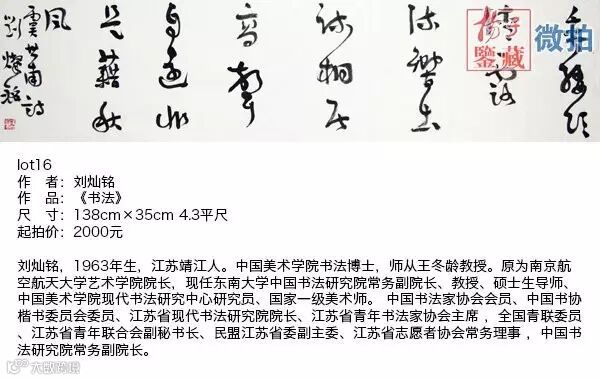 垂緌飲
清露
流響出
疏桐居
高聲
自遠非
是藉秋
風
虞世南詩
劉燦銘
鑒藏
微拍
lot16
作 者：刘灿铭
作 品：《书法》
尺 寸：138cm×35cm 4.3平尺
起拍价：2000元
刘灿铭，1963年生，江苏靖江人。中国美术学院书法博士，师从王冬龄教授。原为南京航
空航天大学艺术学院院长，现任东南大学中国书法研究院常务副院长、教授、硕士生导师、
中国美术学院现代书法研究中心研究员、国家一级美术师。 中国书法家协会会员、中国书协
楷书委员会委员、江苏省现代书法研究院院长、江苏省青年书法家协会主席 ，全国青联委员
、江苏省青年联合会副秘书长、民盟江苏省委副主委、江苏省志愿者协会常务理事 ，中国书
法研究院常务副院长。
大数跨境